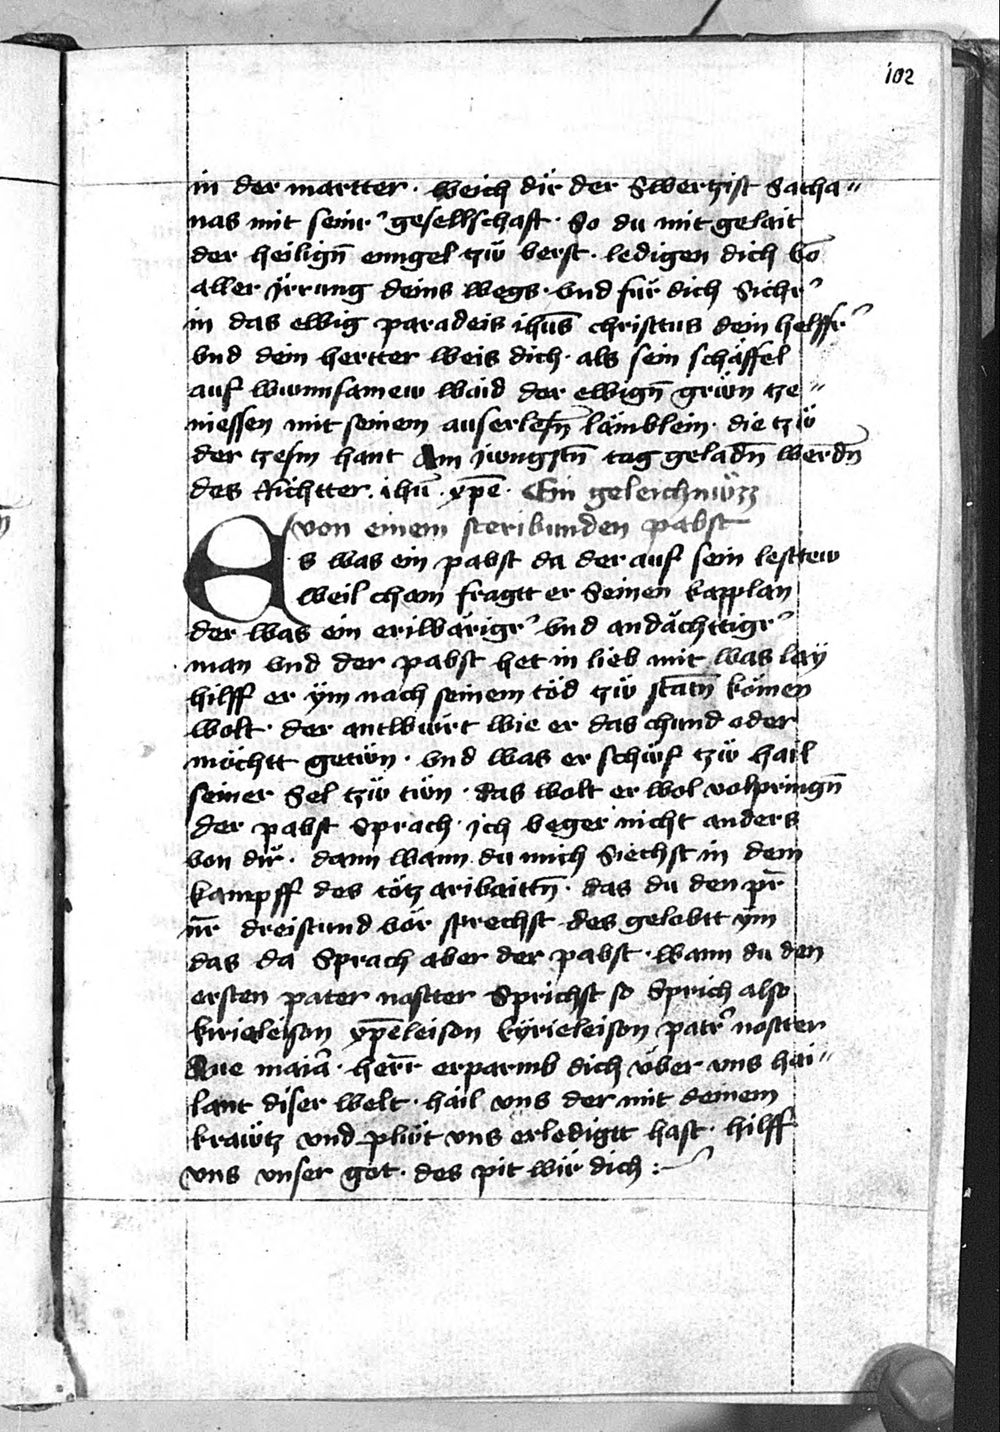 102
in der martter · weich dir der Swertzist Satha⸗
nas mit seinr̛ gesellschaft · So du mit gelait
der heilign̄ enngel tzw̎ verst · ledigen dich vō
aller ÿrrung deins wegs · vnd für dich Sichr̛
in das ewig paradeis ih̄us christtus dein helffr̛
vnd dein hertter weis dich · als sein schäffel
auf wunnsamew waid der ewign̄ grẅn tze⸗
niessen mit seinem auserlesn̄ lämblein · die tzẅ
der tzesm hant Am jwngstn̄ tag geladn̄ werdn̄
des Richtter · ih̄u · xp̄e · Ein geleichnẅzz
von einem steribunden pabst
Es was ein pabst da der auf sein lesttew
weil cham fragtt er Seinen kapplan
der was ein eriwärigr̛ vnd andächttigr̛
man vnd der pabst het in lieb mit was laÿ
hilff er ÿm nach seinem töd tzẅ statn̄ kömen
wolt · der antwürt wie er das chund oder
möchtt getẅn · vnd was er schẅf tzẅ hail
seiner Sel tzẅ tẅn · das wolt er wol volpringn̄
der pabst Sprach · ich beger nicht anders
von dir · dann wann du mich Siechst in dem
kampff des tötz aribaittn̄ · das du den pr̄
nr̄ dreistund vör sprechst des gelobtt ÿm
das da Sprach aber der pabst · wann du den
ersten pater nostter Sprichst so Sprich also
kirieleison xp̄eleison kÿrieleison patr̛ nostter
Aue maiā · herr̄ erparmb dich vber vns hai⸗
lant diser welt · hail vns der mit deinem
krawtz vnd plẅt vns erledigtt hast · hilff
vns vnser got · des pit wir dich :